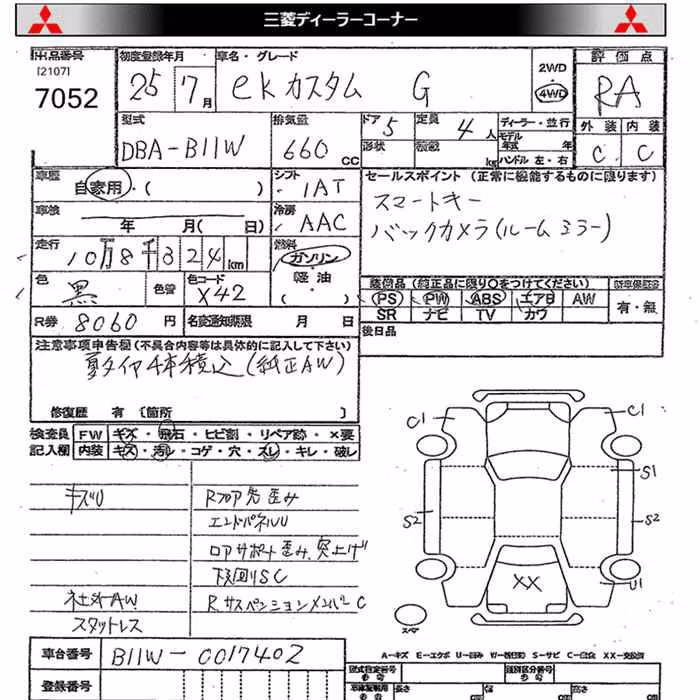 三菱ディーラーコーナー
出品番号
[2107]
7052
初度登録年月
25 7月
車名・グレード
ekカスタム G
2WD
4WD
評価点
RA
外装 内装
C C
型式
DBA-B11W
排気量
660 CC
ドア 5
形状
定員 4人
積載 kg
ディーラー・並行
モデル
年式 年
ハンドル 左・右
車歴
自家用・( )
シフト
IAT
セールスポイント (正常に機能するものに限ります)
スマートキー
バックカメラ(ルームミラー)
車検
年 月( 日)
冷房
AAC
走行
10万8千324km
燃料
ガソリン
軽油
( )
色
黒
色替
色コード
X42
装備品 (純正品に限り○をつけてください)
PS PW ABS エアB AW
SR ナビ TV カワ
新車保証書
有・無
R券 8060円
名変通知期限 月 日
後日品
注意事項申告欄(不具合内容等は具体的に記入して下さい)
夏タイヤ4本積込(純正AW)
修復歴 有 〔箇所 〕
検査員 FW キズ・飛石・ヒビ割・リペア跡・×要
記入欄 内装 キズ・汚レ・コゲ・穴・スレ・キレ・破レ
キズU
社外AW
スタットレス
Rフロア先歪み
エンドパネルU
ロアサポート歪み、突上げ
下回りSC
RサスペンションメンバーC
C1
C1
S1
S2
S2
U1
XX
スペア
A-キズ E-エクボ U-凹み W-補修跡 S-サビ C-腐食 XX-交換済
車台番号
B11W-0017402
登録番号
型式指定番号
参考
類別区分番号
参考
車検証用
参考
長さ cm
幅 cm
高さ cm